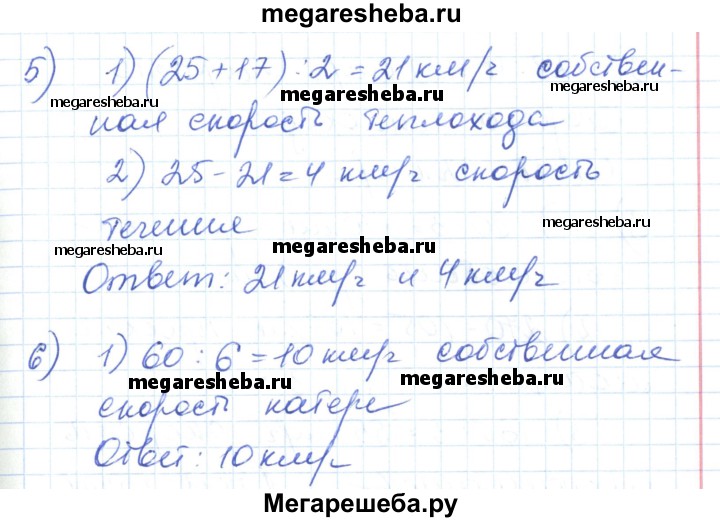 megaresheba.ru
5) 1) (25+17):2=21 км/ч собствен-
megaresheba.ru megaresheba.ru megaresheba.ru
ная скорость теплохода
2) 25-21=4 км/ч скорость
течения
megaresheba.ru megaresheba.ru megaresheba.ru
Ответ: 21 км/ч и 4 км/ч
6) 1) 60:6=10 км/ч собственная
megaresheba.ru megaresheba.ru
скорость катера
Ответ: 10 км/ч
Мегарешеба.ру